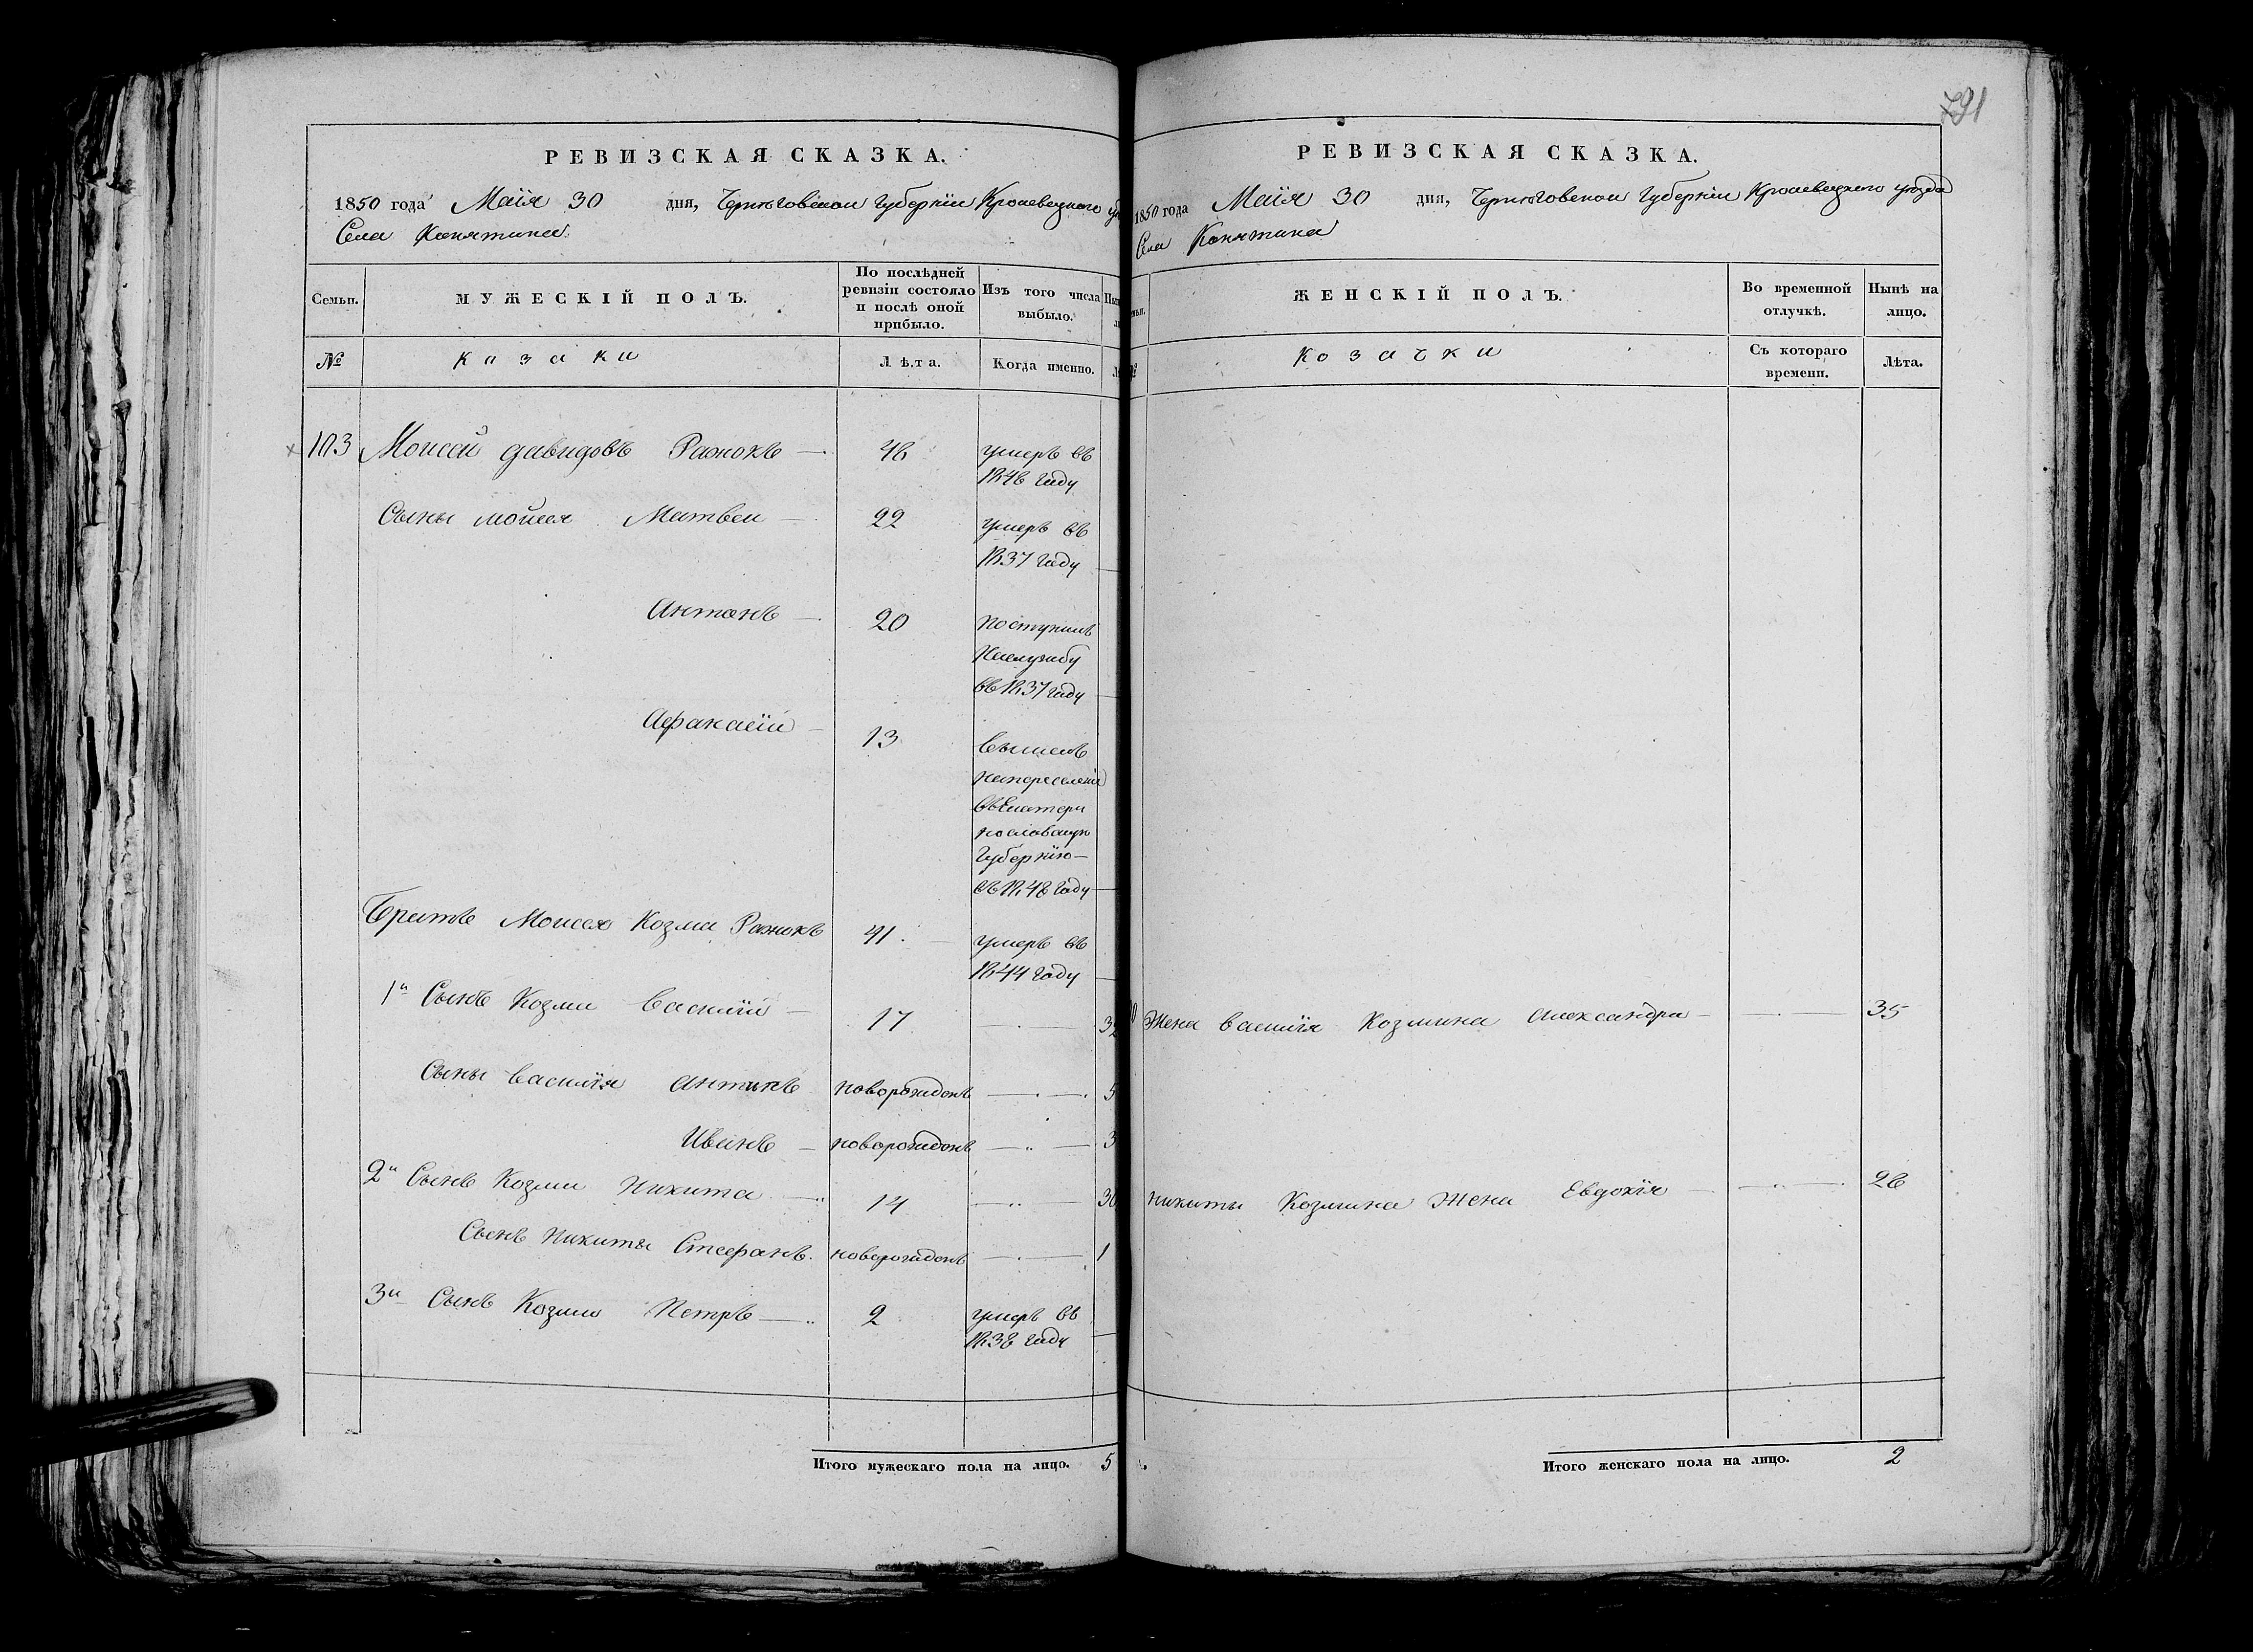 791
РЕВИЗСКАЯ СКАЗКА.
1850 года Маія 30 дня, Черниговской Губерніи Кролевецкого
Села Конятина
Семьи. МУЖЕСКІЙ ПОЛЪ. По послѣдней ревизіи состояло и послѣ оной прибыло. Изъ того числа выбыло.
№ казаки Лѣта. Когда именно.
103 Моисей давидовъ Ражокъ — 46 умеръ въ
1846 году
Сыны моисея Матвей — 22 умеръ въ
1837 году
Антонъ — 20 поступилъ
наслужбу
въ 1837 году
Афанасій — 13 вышелъ
напереселеніе
въ Екатери
нославскую
Губернію —
въ 1848 году
Братъ Моисея Козма Ражокъ 41. умеръ въ
1844 году
1й Сынъ Козмы Василій — 17 — 32
Сыны василія антипъ новорожденъ — 5
Иванъ — новорожденъ — 3
2й Сынъ Козмы Никита — 14 — 30
Сынъ Никиты Стефанъ. новорожденъ — 1
3й Сынъ Козмы Петръ — 2 умеръ въ
1838 году
Итого мужескаго пола на лицо. 5
РЕВИЗСКАЯ СКАЗКА.
1850 года Маія 30 дня, Черниговской Губерніи Кролевецкого уѣзда
Села Конятина
ЖЕНСКІЙ ПОЛЪ. Во временной отлучкѣ. Нынѣ на лицо.
козачки Съ котораго времени. Лѣта.
Жена василія Козмина Александра — 35
Никиты Козмина Жена Евдокія — 28
Итого женскаго пола на лицо. 2